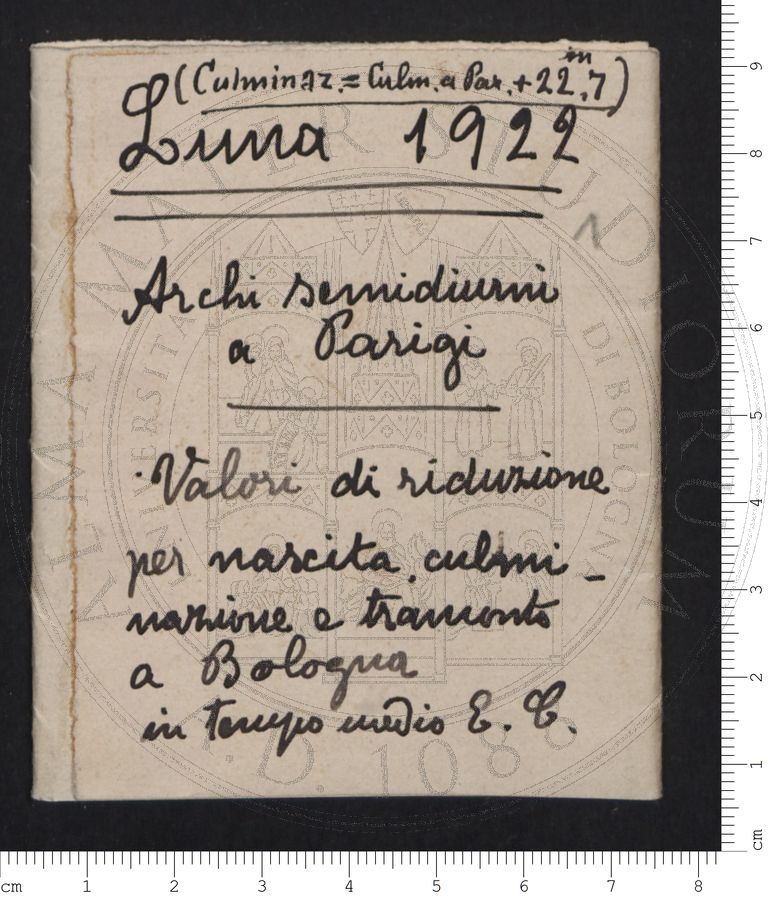 (Culminaz. = Culm. a Par. + 22,7 m)
Luna 1922
1
Archi semidiurni
a Parigi
Valori di riduzione
per nascita, culmi-
nazione e tramonto
a Bologna
in tempo medio E. C.
ALMA MATER STUDIORUM
UNIVERSITÀ DI BOLOGNA
A.D. 1088
cm 1 2 3 4 5 6 7 8
9
8
7
6
5
4
3
2
1
cm